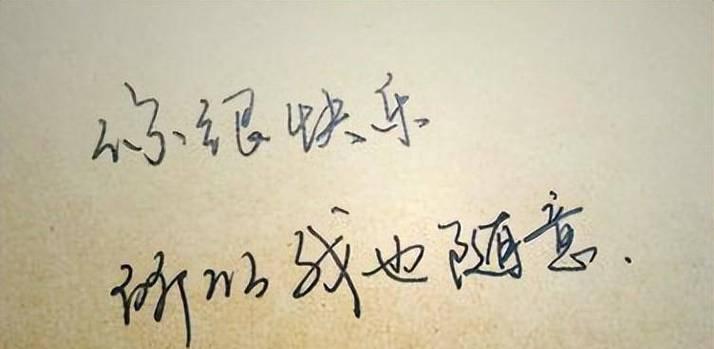 你很快乐
所以我也随意.